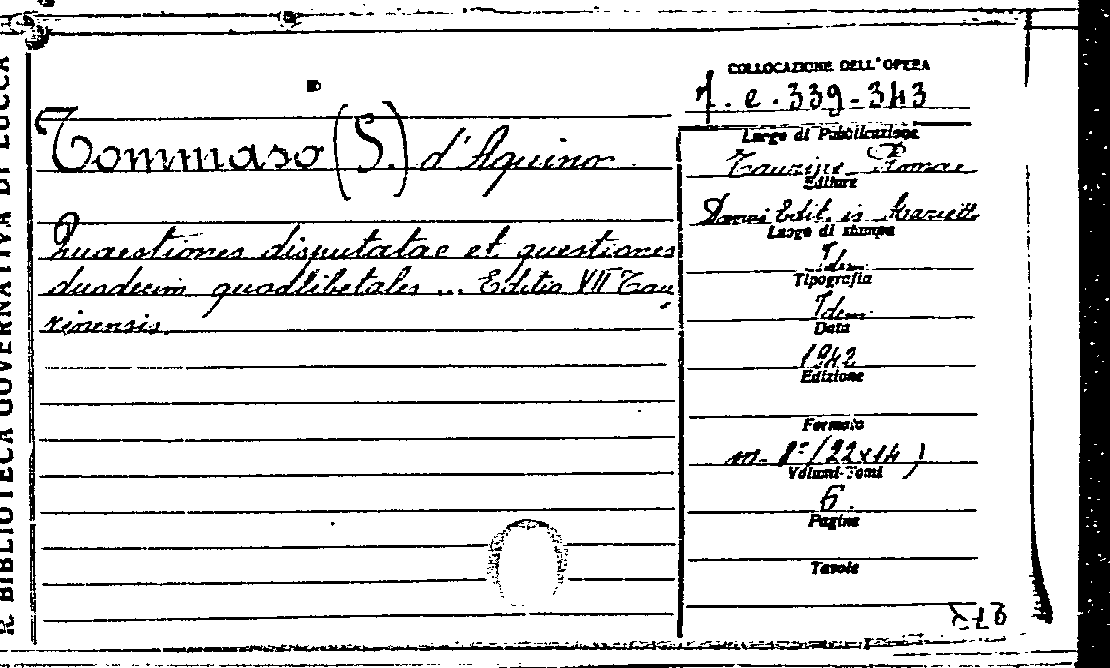 R. BIBLIOTECA GOVERNATIVA DI LUCCA
Tommaso (S.) d'Aquino
Quaestiones disputatae et questiones
duodecim quodlibetales ... Editio VII Tau
rinensis.
COLLOCAZIONE DELL'OPERA
e. 339-343
Luogo di Pubblicazione
Taurini Romae
Editore
Edit. is Marietti
Luogo di stampa
Id.
Tipografia
Idem.
Data
1942
Edizione
Formato
in-8° (22x14)
Volumi-Tomi
5.
Pagine
Tavole